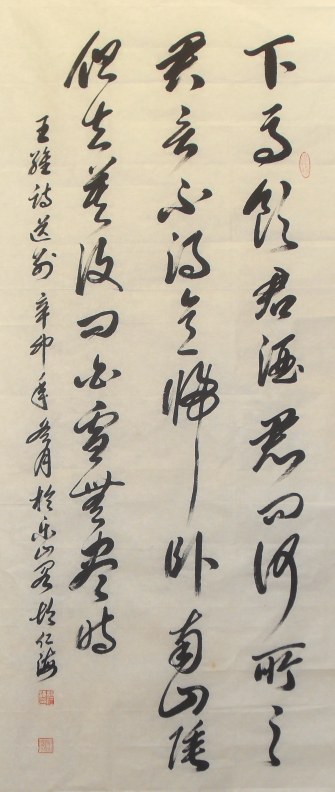 下馬飲君酒君問何所之
君言不得意歸卧南山陲
但去莫復問白雲無盡時
王維詩送別辛卯年月於樂山仁海